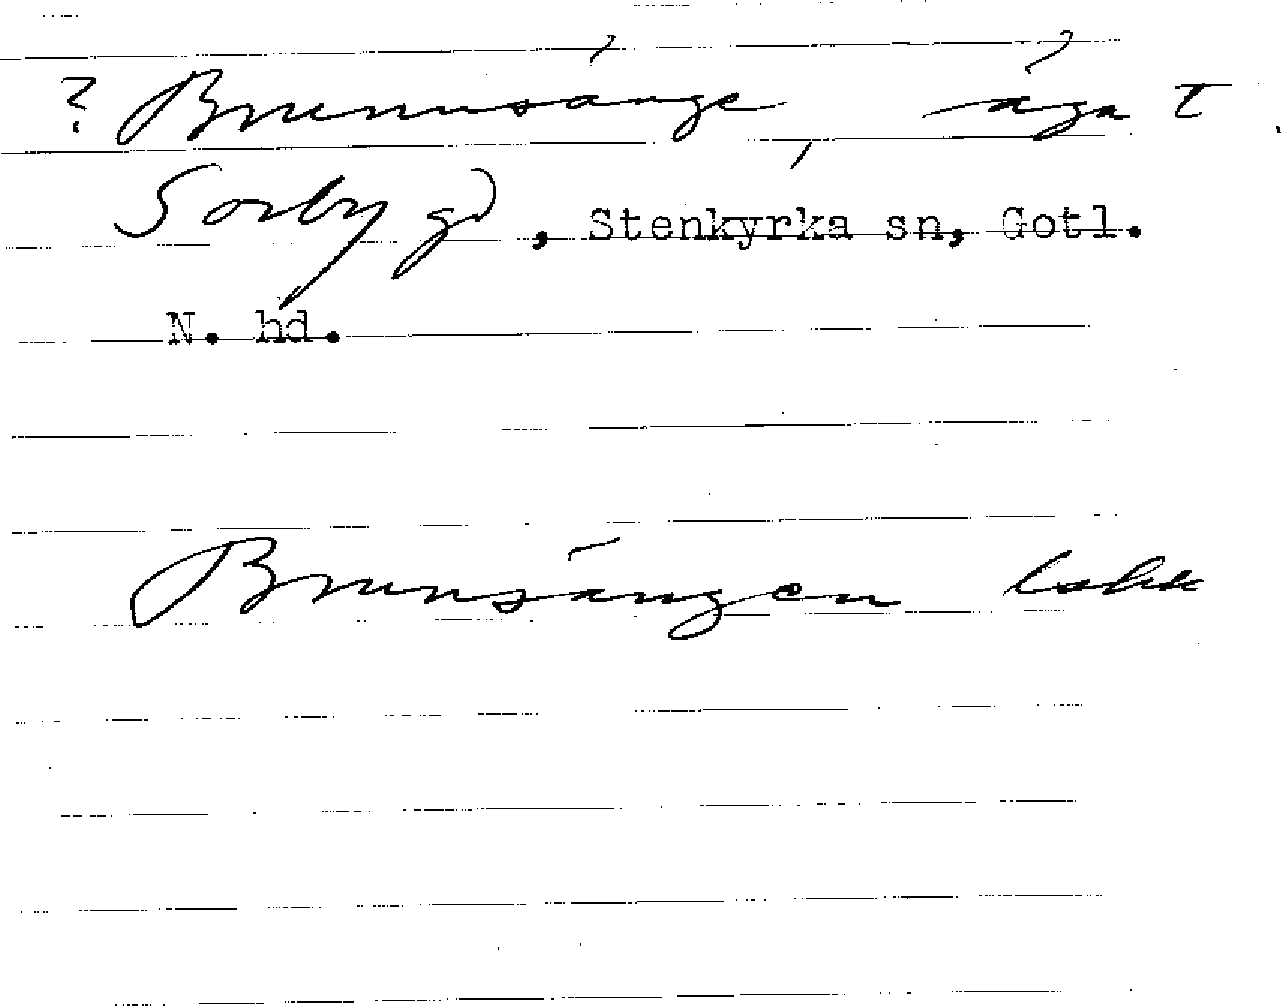 ? Brunnsänge, äga t.
Sorby gd, Stenkyrka sn, Gotl.
N. hd.
Brunsängen